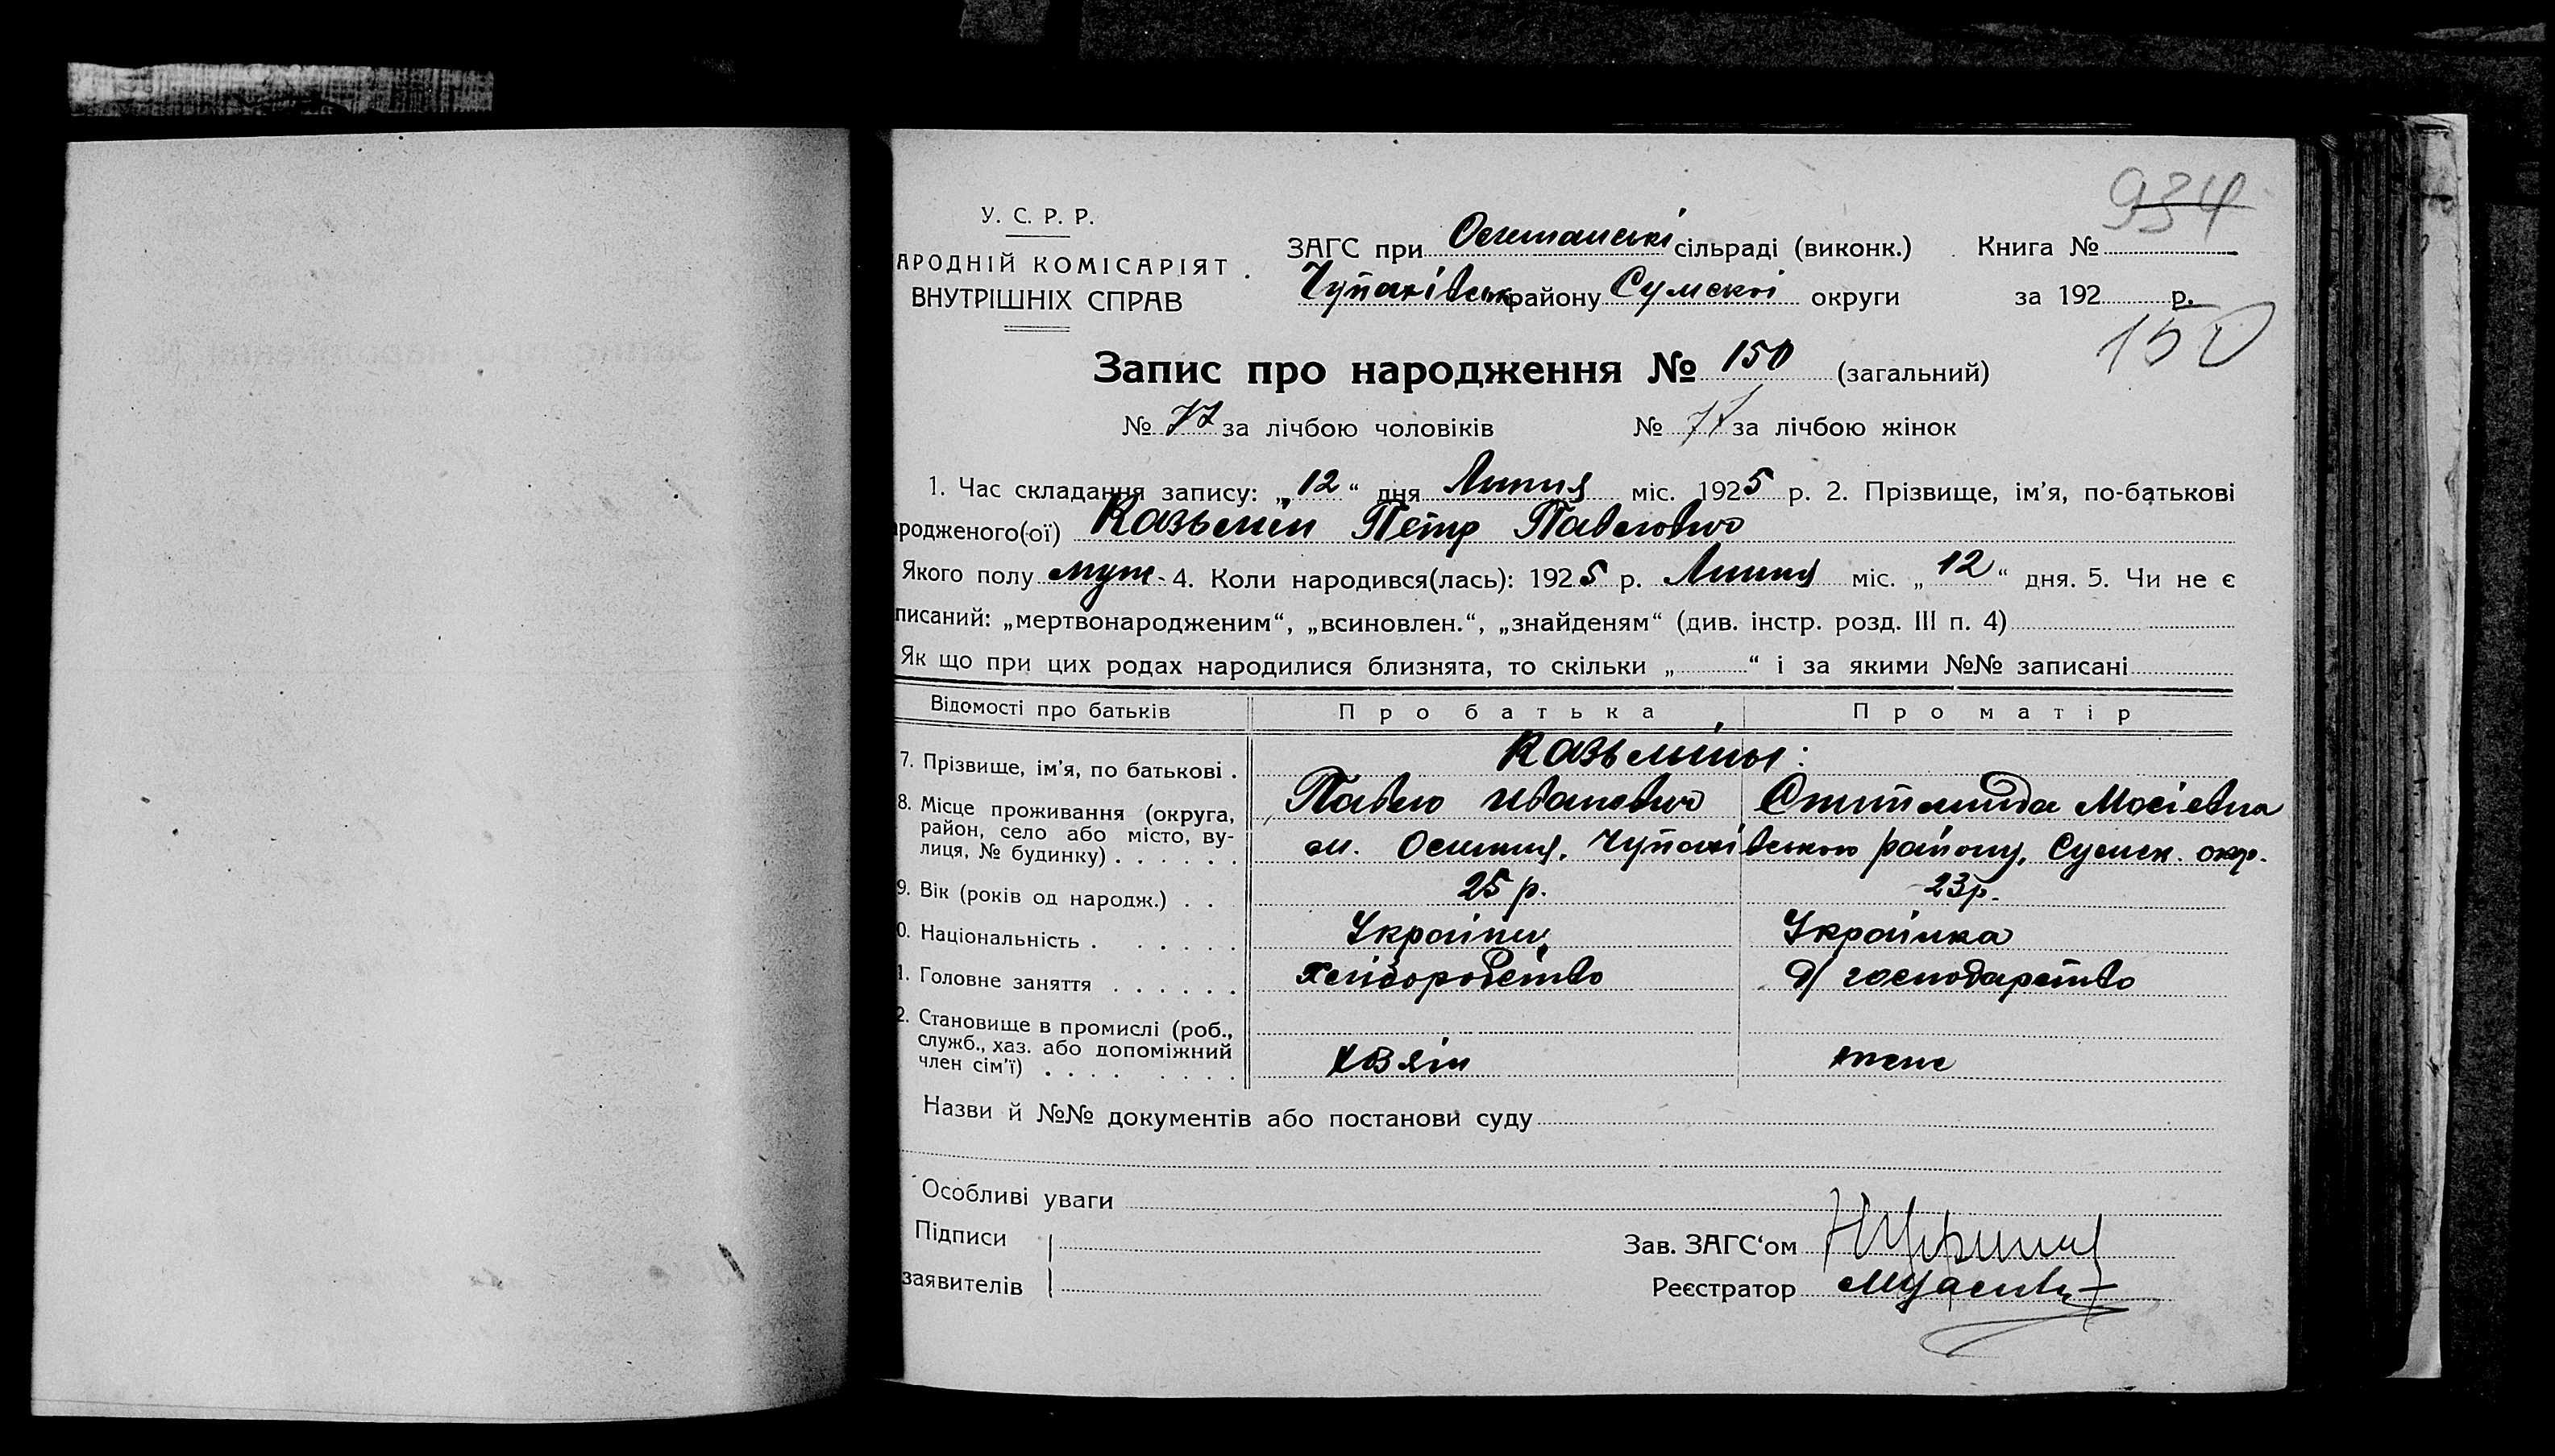 934
У. С. Р. Р.
АРОДНІЙ КОМІСАРІЯТ
ВНУТРІШНІХ СПРАВ
ЗАГС при сільраді (виконк.) Книга №
Чупахівськ району Сумскої округи за 192 р.
150
Запис про народження № 150 (загальний)
№ 77 за лічбою чоловіків № за лічбою жінок
1. Час складання запису: „12“ дня Липня міс. 1925 р. 2. Прізвище, ім'я, по-батькові
родженого(ої) Казьмін Петр Павлович
Якого полу муж. 4. Коли народився(лась): 1925 р. Липня міс. „12“ дня. 5. Чи не є
писаний: „мертвонародженим“, „всиновлен.“, „знайденям“ (див. інстр. розд. III п. 4)
Як що при цих родах народилися близнята, то скільки „ “ і за якими №№ записані
Відомості про батьків Про батька Про матір
Казьміны:
7. Прізвище, ім'я, по батькові . Павло Иванович Мосієвна
8. Місце проживання (округа,
район, село або місто, ву-
лиця, № будинку) . . . . . . Чупахівського району, Сумск. окр.
9. Вік (років од народж.) . . 25 р. 23 р.
0. Національність . . . . . . Украінец Украінка
1. Головне заняття . . . . . . Хліборобство д/ господарство
2. Становище в промислі (роб.,
служб., хаз. або допоміжний
член сім'ї) . . . . . . . . Хазяін жена
Назви й №№ документів або постанови суду
Особливі уваги
Підписи
заявителів
Зав. ЗАГС'ом
Реєстратор